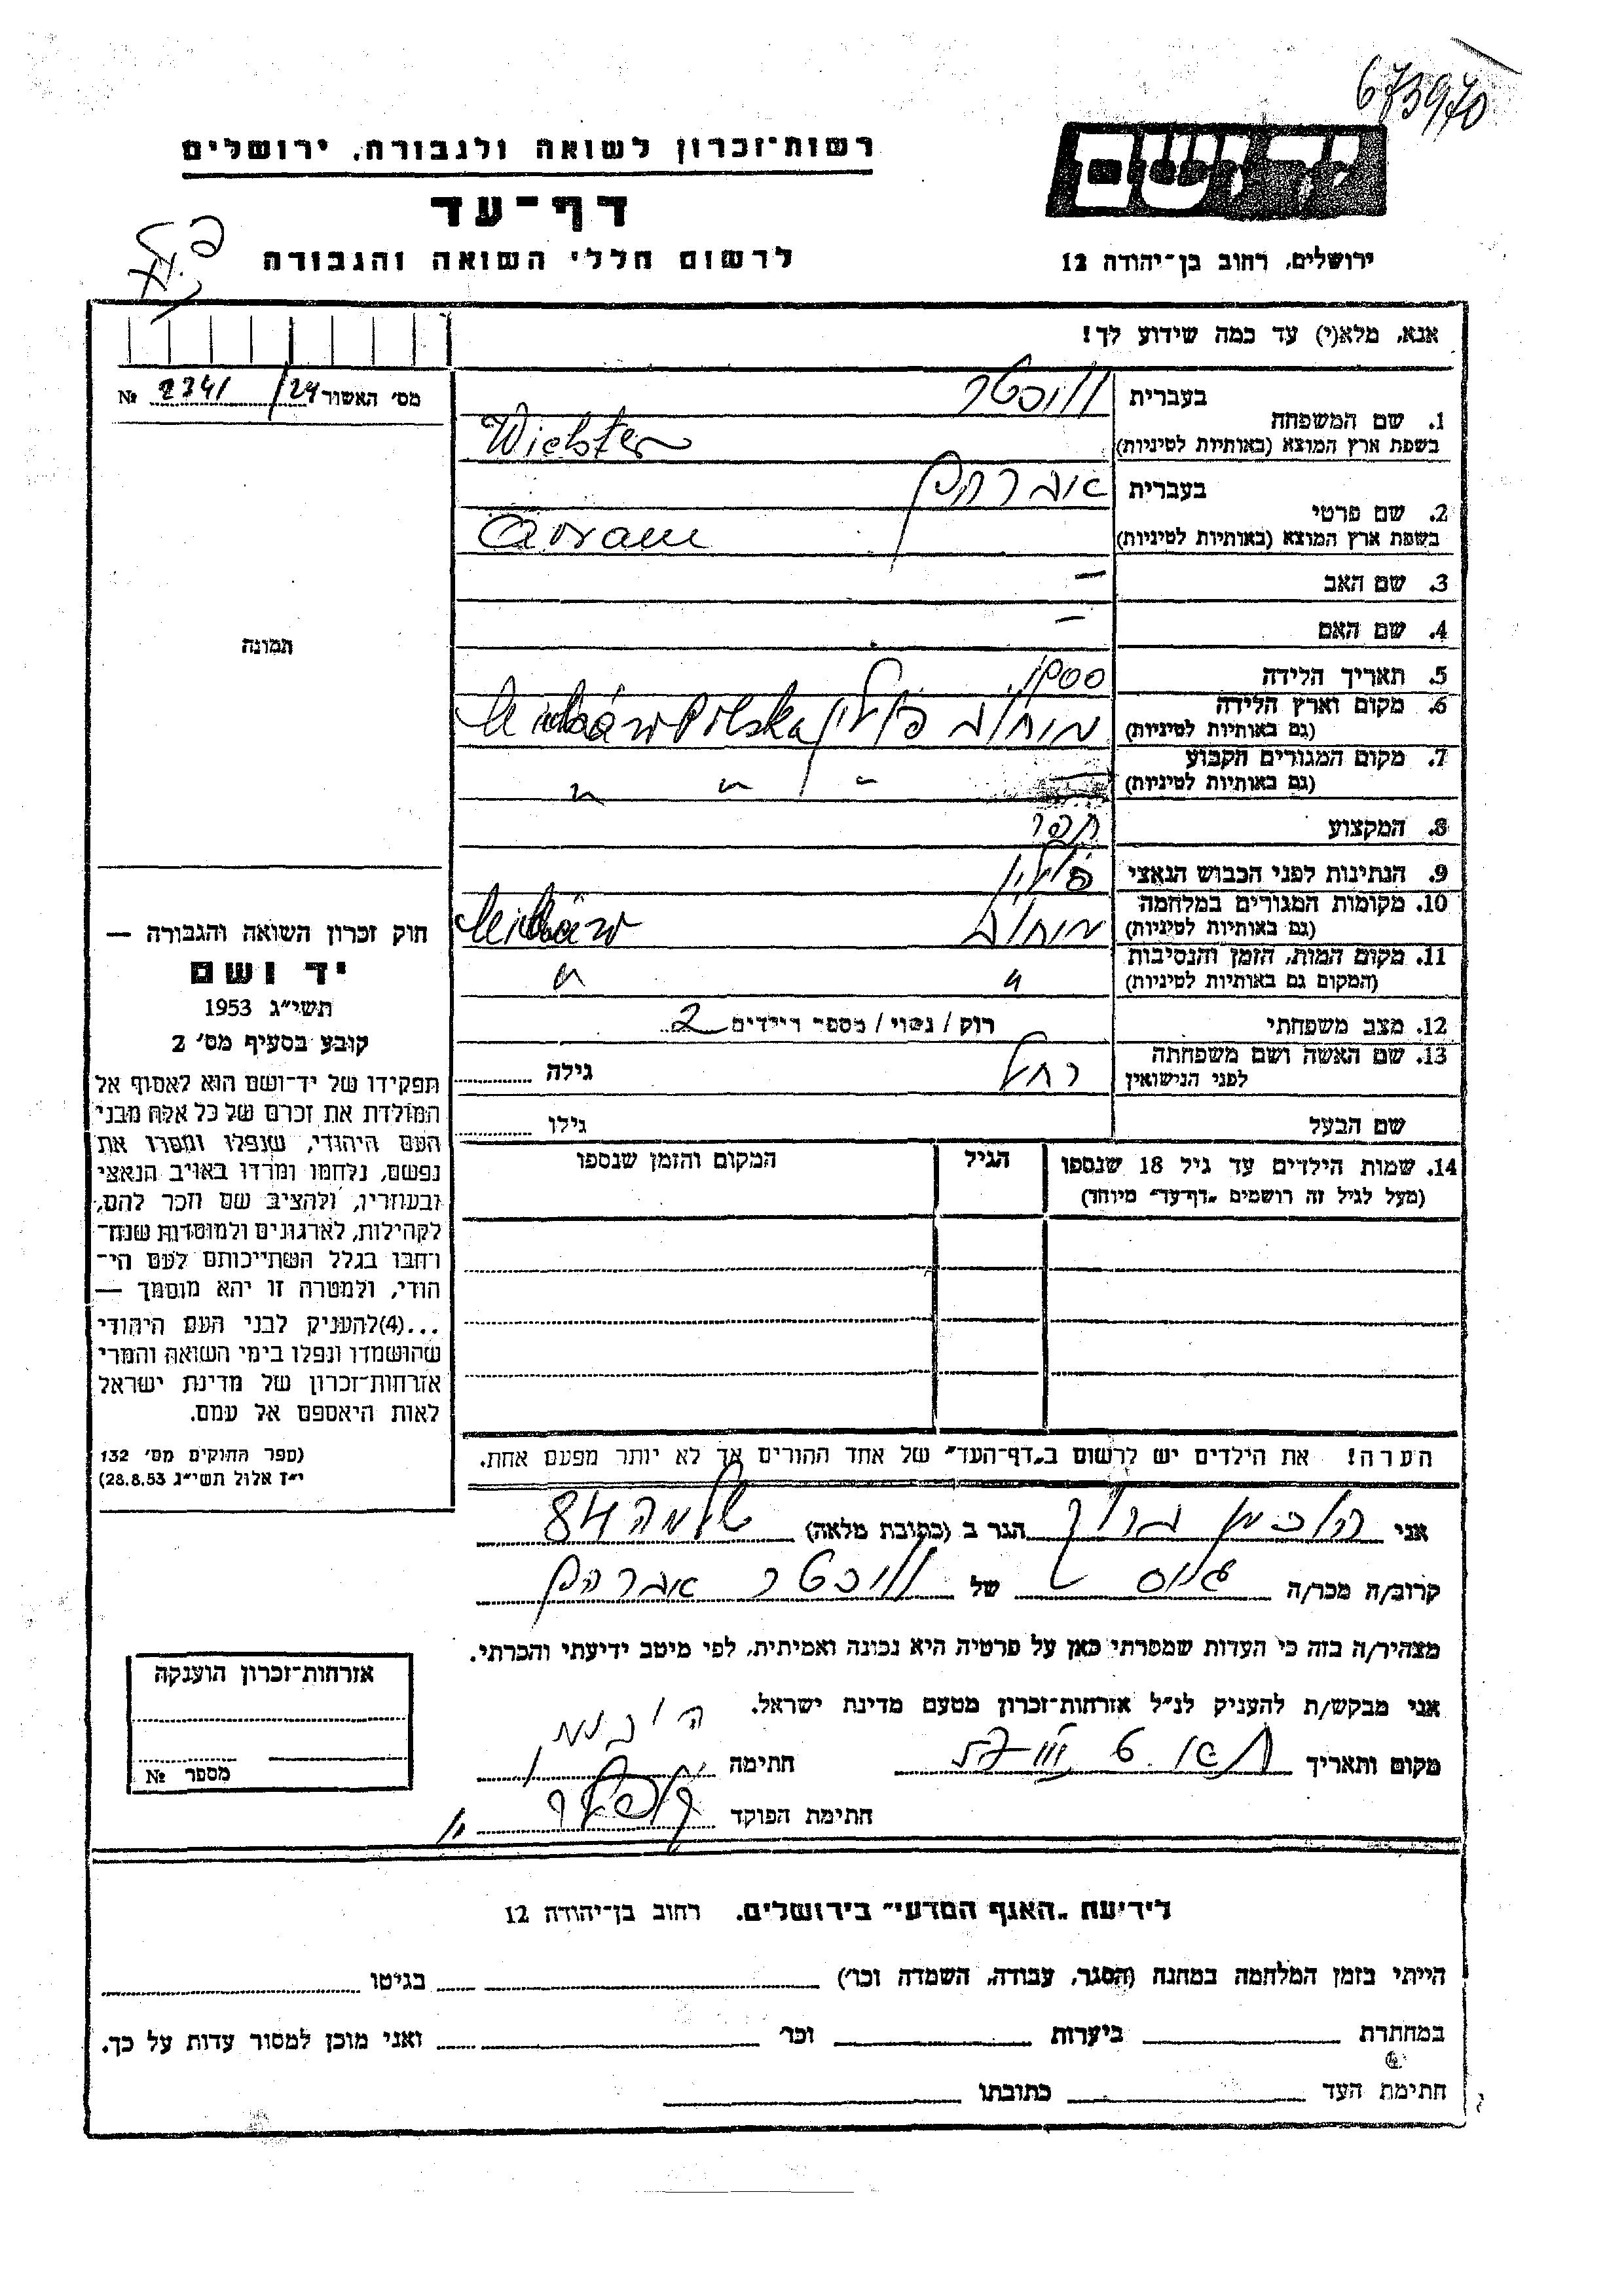 673970
רשות־זכרון לשואה ולגבורה, ירושלים
יד ושם
דף־עד
לרשום חללי השואה והגבורה
ירושלים, רחוב בן־יהודה 12
אנא, מלא(י) עד כמה שידוע לך!
מס׳ האשור 24/ 2341 №
1. שם המשפחה
בעברית
בשפת ארץ המוצא (באותיות לטיניות)
Wichter
2. שם פרטי
בעברית אברהם
בשפת ארץ המוצא (באותיות לטיניות)
Avram
3. שם האב —
4. שם האם —
תמונה
5. תאריך הלידה 1900
6. מקום וארץ הלידה
(גם באותיות לטיניות) מיחוב פולין Polska
7. מקום המגורים הקבוע
(גם באותיות לטיניות) " " "
8. המקצוע תפר
9. הנתינות לפני הכבוש הנאצי פולין
10. מקומות המגורים במלחמה
(גם באותיות לטיניות) מיחוב
11. מקום המות, הזמן והנסיבות
(המקום גם באותיות לטיניות) " "
12. מצב משפחתי רוק / נשוי / מספר הילדים 2
13. שם האשה ושם משפחתה
לפני הנישואין רחל גילה
שם הבעל גילו
14. שמות הילדים עד גיל 18 שנספו
(מעל לגיל זה רושמים „דף־עד״ מיוחד)
הגיל
המקום והזמן שנספו
חוק זכרון השואה והגבורה —
יד ושם
תשי״ג 1953
קובע בסעיף מס׳ 2
תפקידו של יד־ושם הוא לאסוף אל
המולדת את זכרם של כל אלה מבני
העם היהודי, שנפלו ומסרו את
נפשם, נלחמו ומרדו באויב הנאצי
ובעוזריו, ולהציב שם וזכר להם,
לקהילות, לארגונים ולמוסדות שנח־
רחבו בגלל השתייכותם לעם הי־
הודי, ולמטרה זו יהא מוסמך —
...(4)להעניק לבני העם היהודי
שהושמדו ונפלו בימי השואה והמרי
אזרחות־זכרון של מדינת ישראל
לאות היאספם אל עמם.
(ספר החוקים מס׳ 132
י״ז אלול תשי״ג 28.8.53)
הערה! את הילדים יש לרשום ב„דף־העד״ של אחד ההורים אך לא יותר מפעם אחת.
אני ברוך הגר ב (כתובת מלאה) שלמה 84
קרוב/ה מכר/ה של אברהם
מצהיר/ה בזה כי העדות שמסרתי כאן על פרטיה היא נכונה ואמיתית, לפי מיטב ידיעתי והכרתי.
אני מבקש/ת להעניק לנ״ל אזרחות־זכרון מטעם מדינת ישראל.
מקום ותאריך חתימה
חתימת הפוקד
אזרחות־זכרון הוענקה
מספר №
לידיעת „האגף המדעי״ בירושלים, רחוב בן־יהודה 12
הייתי בזמן המלחמה במחנה (הסגר, עבודה, השמדה וכו׳) בגיטו
במחתרת ביערות וכו׳ ואני מוכן למסור עדות על כך.
חתימת העד כתובתו